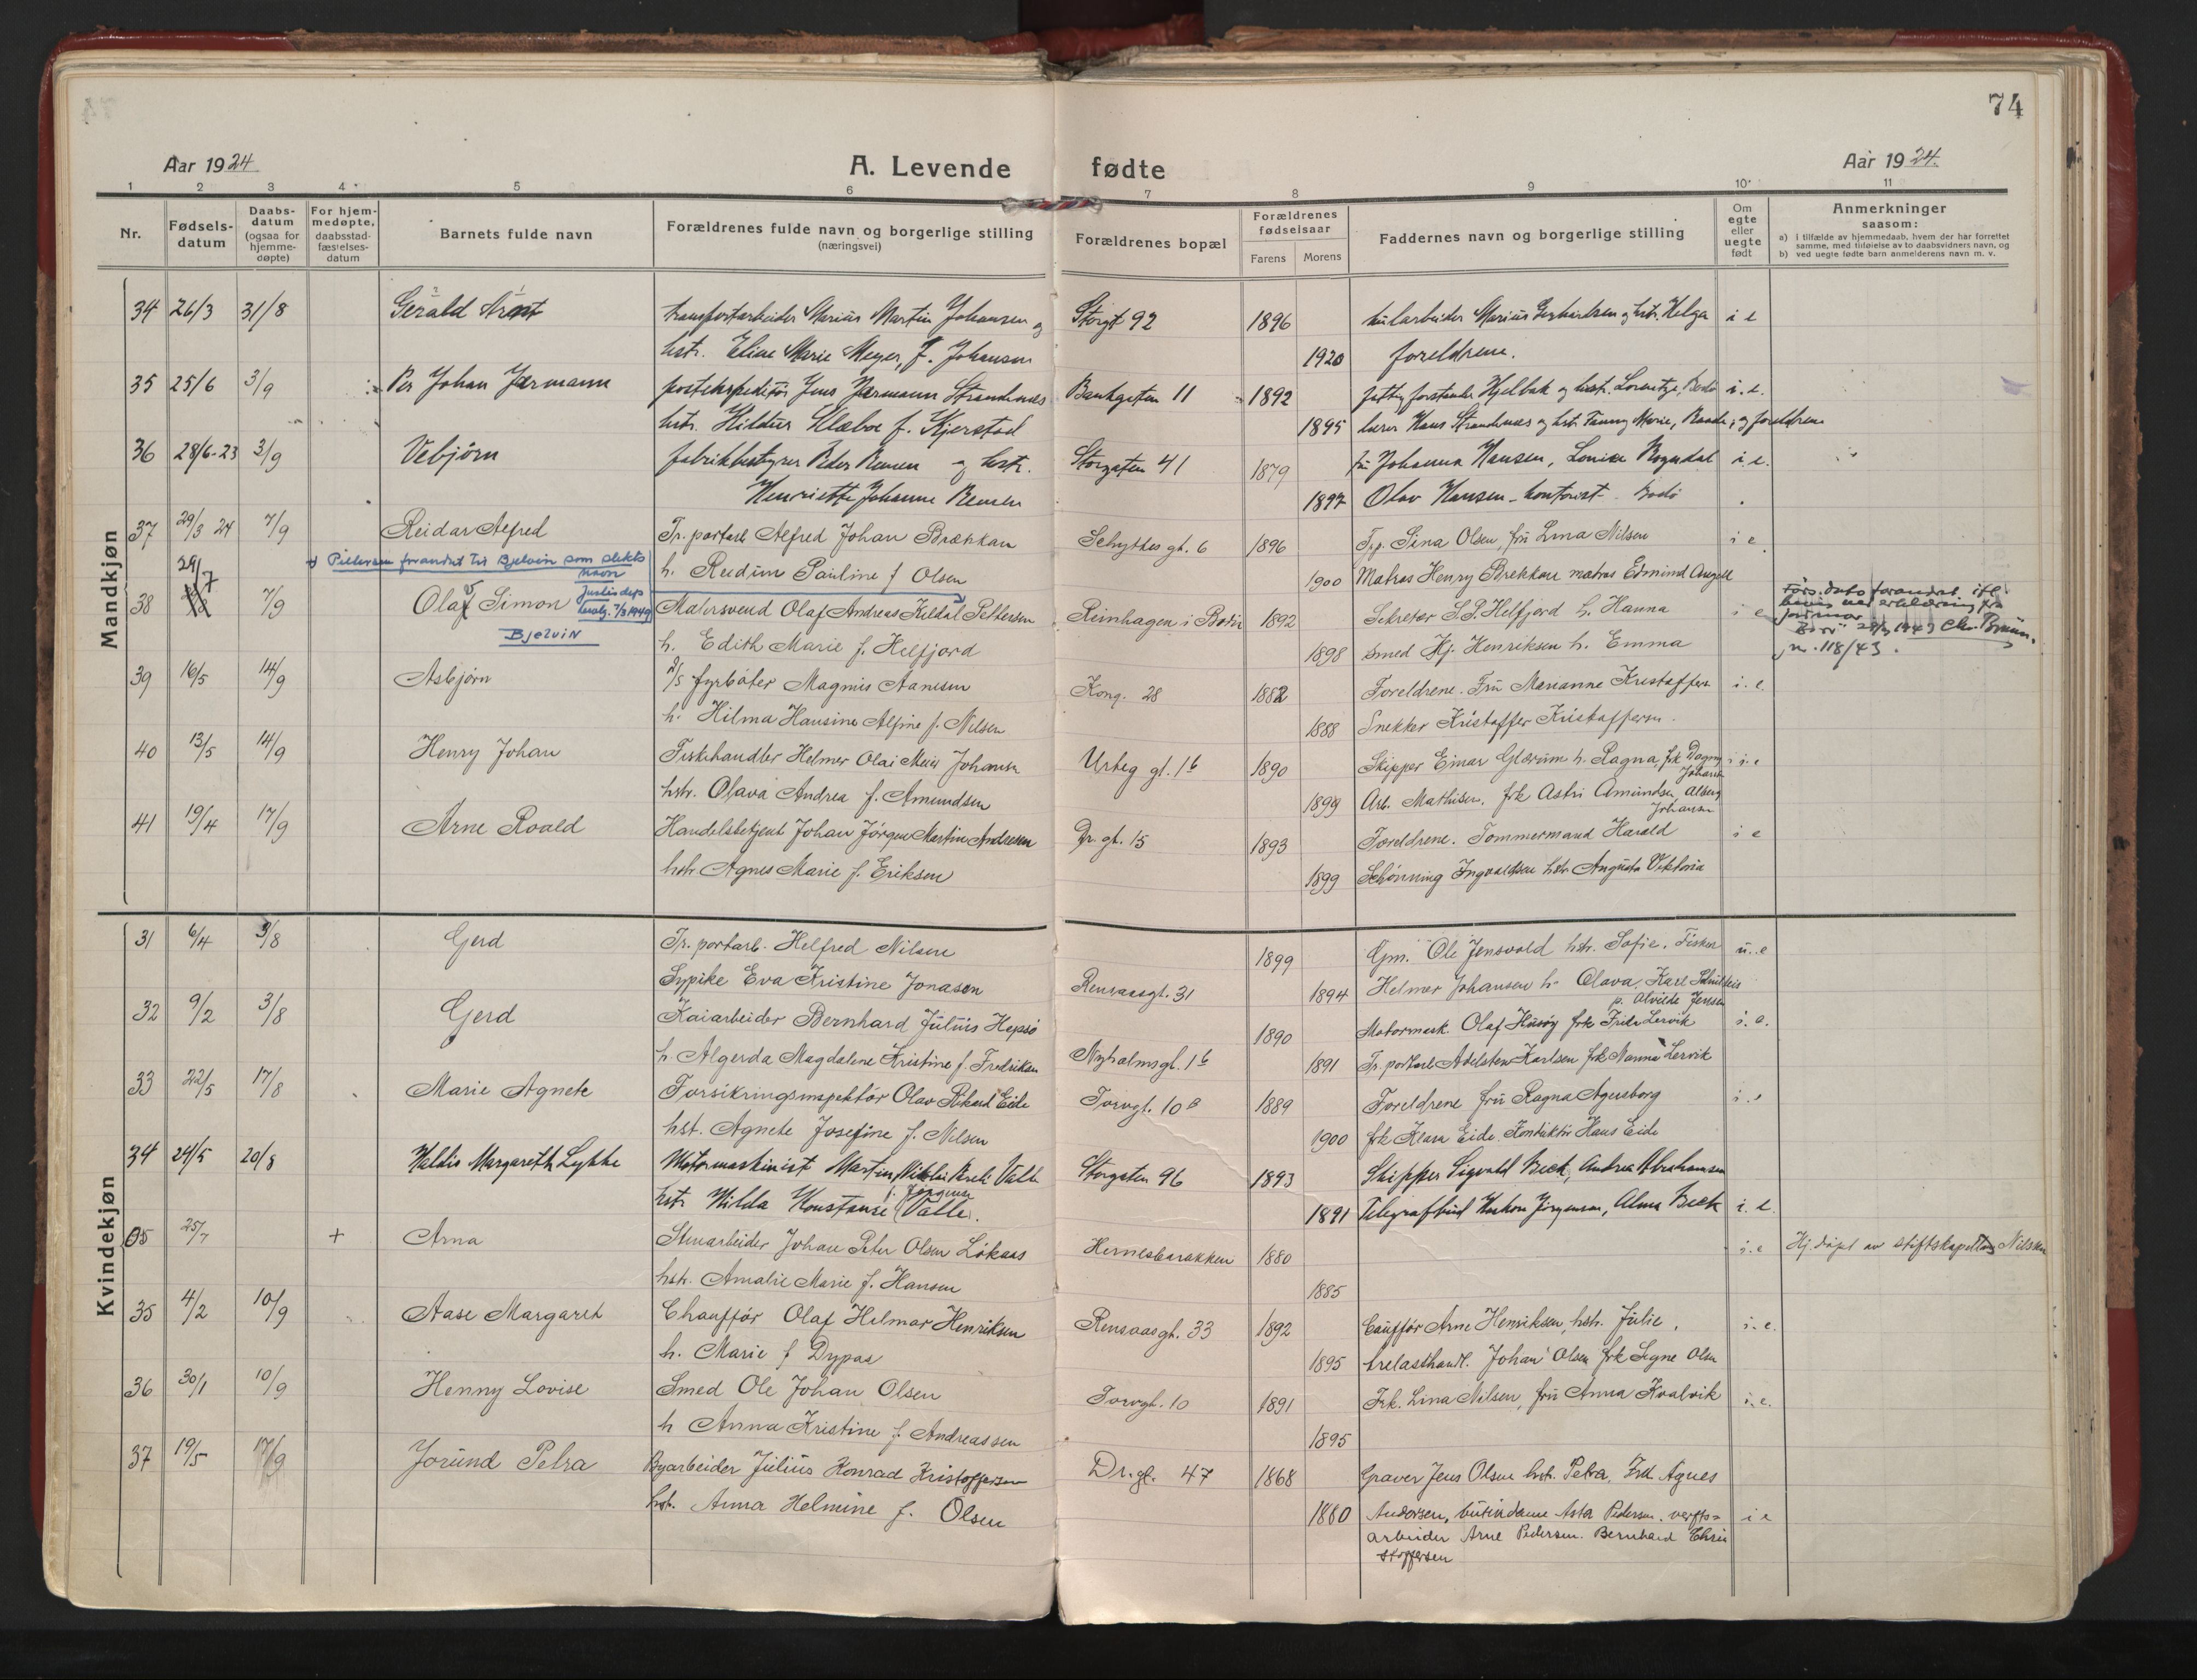 74
Aar 1924
A. Levende fødte
Aar 1924.
1 2 3 4 5 6 7 8 9 10 11
Nr.
Fødselsdatum
Daabsdatum (ogsaa for hjemmedøpte)
For hjemmedøpte, daabsstadfæstelsesdatum
Barnets fulde navn
Forældrenes fulde navn og borgerlige stilling (næringsvei)
Forældrenes bopæl
Forældrenes fødselsaar
Farens Morens
Faddernes navn og borgerlige stilling
Om egte eller uegte født
Anmerkninger saasom:
a) I tilfælde av hjemmedaab, hvem der har forrettet samme, med tilføielse av to daabsvidners navn, og
b) ved uegte fødte barn anmelderens navn m. v.
Mandkjøn
34 26/3 31/8 Gerald Arnt transportarbeider Marius Martin Johansen og Storgt 92 1896 Marius Gerhardsen og hstr. Helga i e
hstr. Eline Marie Meyer, f. Johansen 1920 foreldrene.
35 25/6 3/9 Per Johan Jærmann postekspeditör Jens Jærmann Strandenæs Bankgaten 11 1892 Hjelbak og hstr. Bodø i. e.
hstr. Hildur Klæboe f. Kjerstad 1895 lærer Hans Strandenæs og hst. Fanny Marie, og foreldrene
36 28/6-23 3/9 Vebjørn fabrikkbestyrer Peder og hstr. Storgaten 41 1879 fru Johanna Hansen, i. e.
Henriette Johanne 1897 Olav Hansen - kontorist - Bodø
37 29/3 24 7/9 Reidar Alfred Tr. portarb Alfred Johan Brækkan Schyttes gt. 6 1896 Frk. Sina Olsen, fru Lina Nilsen i e.
+ Pettersen forandret til Bjelvin som slektsnavn
h. Reidun Pauline f Olsen 1900 Matros Henry Brekkan matros Edmind Angell
Justisdep bevilg. 7/3 1949
38 29/7 7/9 Olaf Simon Malersvend Olaf Andreas Kildal Pettersen Reinhagen i Bodin 1892 Sekretær S.P. Helfjord h. Hanna i e
Bjelvin
h. Edith Marie f. Helfjord 1898 Smed Hj. Henriksen h. Emma
Føds.dato forandret ifl. bevis ved erklæring fra jormor
Bodö 1943 Chr. Bruun.
nr. 118/43.
39 16/5 14/9 Asbjørn fyrbøter Magnus Aanesen Kong. 28 1882 Foreldrene. Fru Marianne Kristoffers i. e.
h. Hilma Hansine Alfine f. Nilsen 1888 Snekker Kristoffer Kristoffersen.
40 13/5 14/9 Henry Johan Fiskehandler Helmer Olai Meier Johansen Urbg gt. 1b 1890 Skipper Einar Glærum h. Ragna, frk Dagny Johansen i. e
hstr. Olava Andrea f. Amundsen 1899 Arb. Mathisen, frk Astri Amundsen, Alberg Johansen
41 19/4 17/9 Arne Roald Handelsbetjent Johan Jörgen Martin Andresen Dr. gt. 15 1893 Foreldrene. Tømmermand Harald i e
hstr Agnes Marie f. Eriksen 1899 Schønning Ingvaldsen hstr Augusta Viktoria
Kvindekjøn
31 6/4 3/8 Gerd Tr. portarb. Helfred Nilsen 1899 Gm. Ole Jensvold hstr. Sofie. Fisker u. e
Sypike Eva Kristine Jonasen Rensaasgt. 31 1894 Helmer Johansen h. Olava, Karl p. Alvilde Jensen
32 9/2 3/8 Gerd Kaiarbeider Bernhard Julius Hepsø 1890 Motormask. Olaf Husøy frk Frida Lervik i. e.
h. Algerda Magdalene Kristine f. Fredriksen Nyholmsgt. 1b 1891 Tr. portarb Adelsten Karlsen frk Nanna Lervik
33 22/5 17/8 Marie Agnete Forsikringsinspektør Olav Rikard Eide Torvgt. 10 B 1889 Foreldrene fru Ragna Agersborg i. e
hst. Agnete Josefine f. Nilsen 1900 frk Klara Eide. Konduktör Hans Eide
34 24/5 20/8 Haldis Margareth Lykke Motormaskinist Martin Nikolai Valle Storgaten 96 1893 Skipper Sigvald Beck, Andrea Abrahamsen
hstr Hilda Konstanse (Valle. f. Jörgensen 1891 Telegrafbud Haakon Jörgensen, Alma Beck i. e.
35 25/7 + Arna Stenarbeider Johan Peter Olsen Løkaas Hernesbarakken 1880 i. e Hj. døpt av stiftskapellan Nilsen
hstr. Amalie Marie f. Hansen 1885
35 4/2 10/9 Aase Margaret Chauffør Olaf Helmar Henriksen Rensaasgt. 33 1892 Cauffør Arne Henriksen, hstr. Julie, i. e.
h. Marie f Dypaa 1895 trelasthandl. Johan Olsen frk Signe Olsen
36 30/1 10/9 Henny Lovise Smed Ole Johan Olsen Torvgt. 10 1891 Frk. Lina Nilsen, fru Anna Kvalvik i. e.
h Anna Kristine f. Andreassen 1895
37 19/5 17/9 Jorund Petra Byarbeider Julius Konrad Kristoffersen Dr. gt. 47 1868 Graver Jens Olsen hstr. Petra, Frk Agnes
hst. Anna Helmine f. Olsen 1880 Andersen, butikdame Asta Pedersen, verfts- i e
arbeider Arne Pedersen. Bernhard Chri
stoffersen